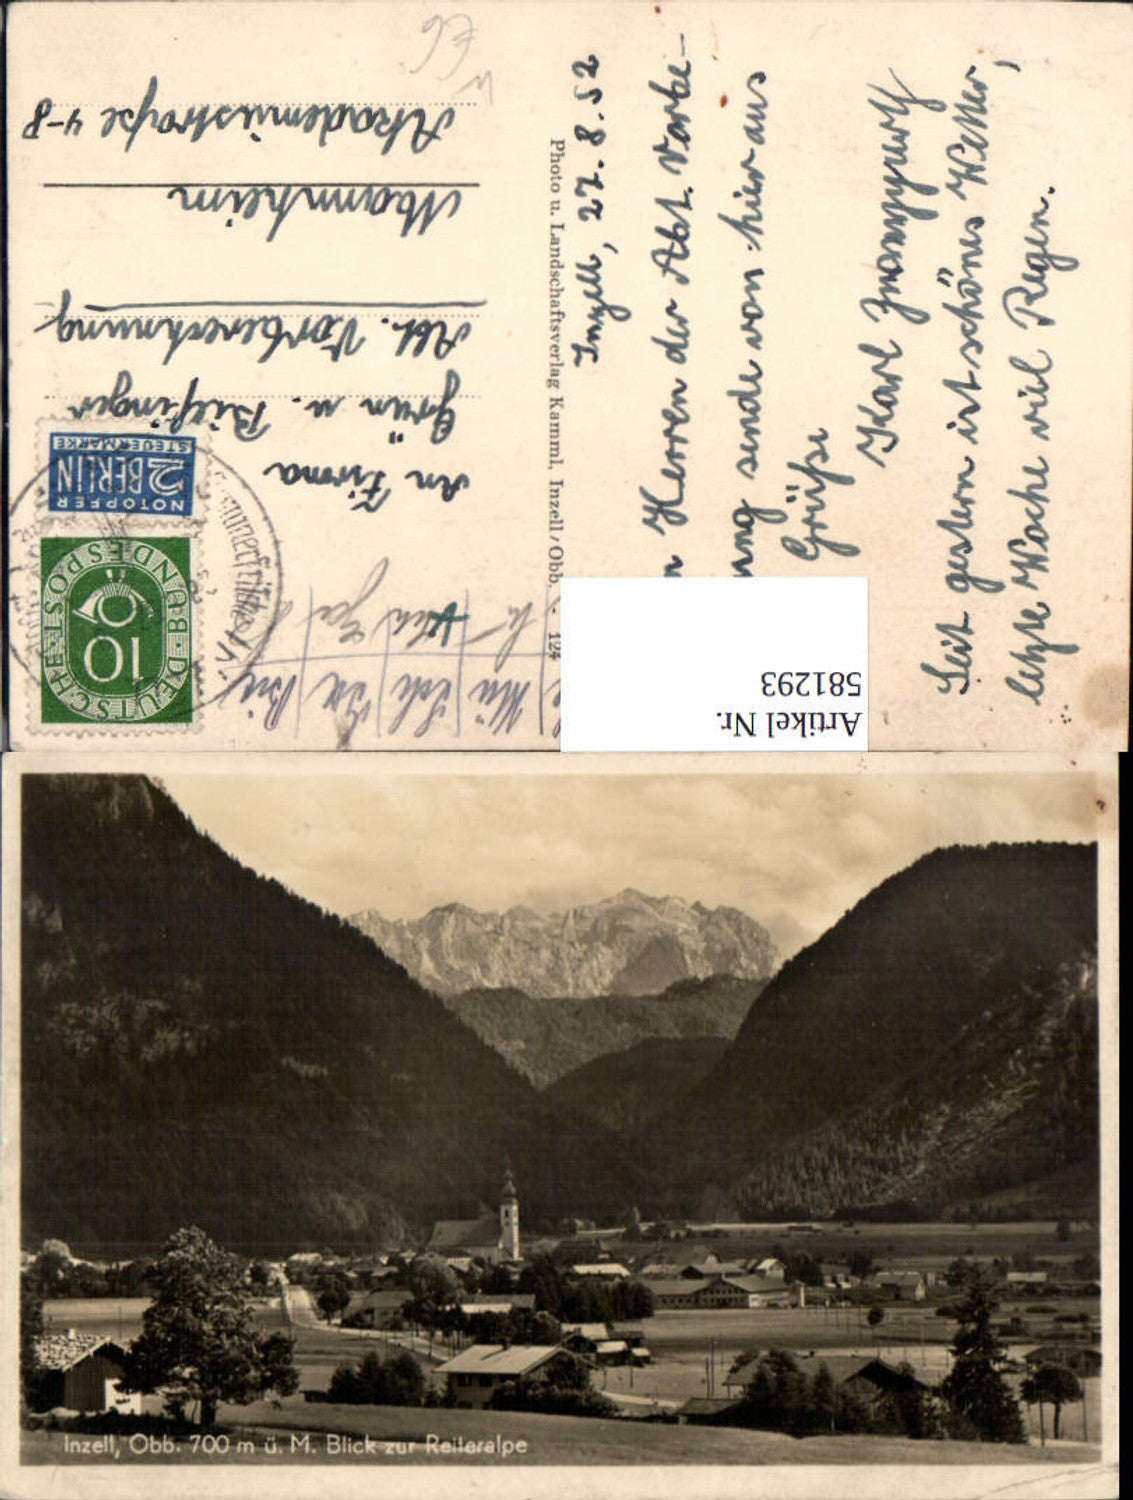 Inzell, 27.8.52
Herren der Abt. Vorbe-
ung sende von hier aus
Grüße
Karl
Seit gestern ist schönes Wetter,
letzte Woche viel Regen.
Photo u. Landschaftsverlag Kamml, Inzell/Obb. - 124
An Firma
Grün u. Bilfinger
Abt. Vorberechnung
Mannheim
Akademiestraße 4-8
NOTOPFER
2 BERLIN
STEUERMARKE
DEUTSCHE BUNDESPOST
10
Artikel Nr.
581293
Inzell, Obb. 700 m ü. M. Blick zur Reiteralpe